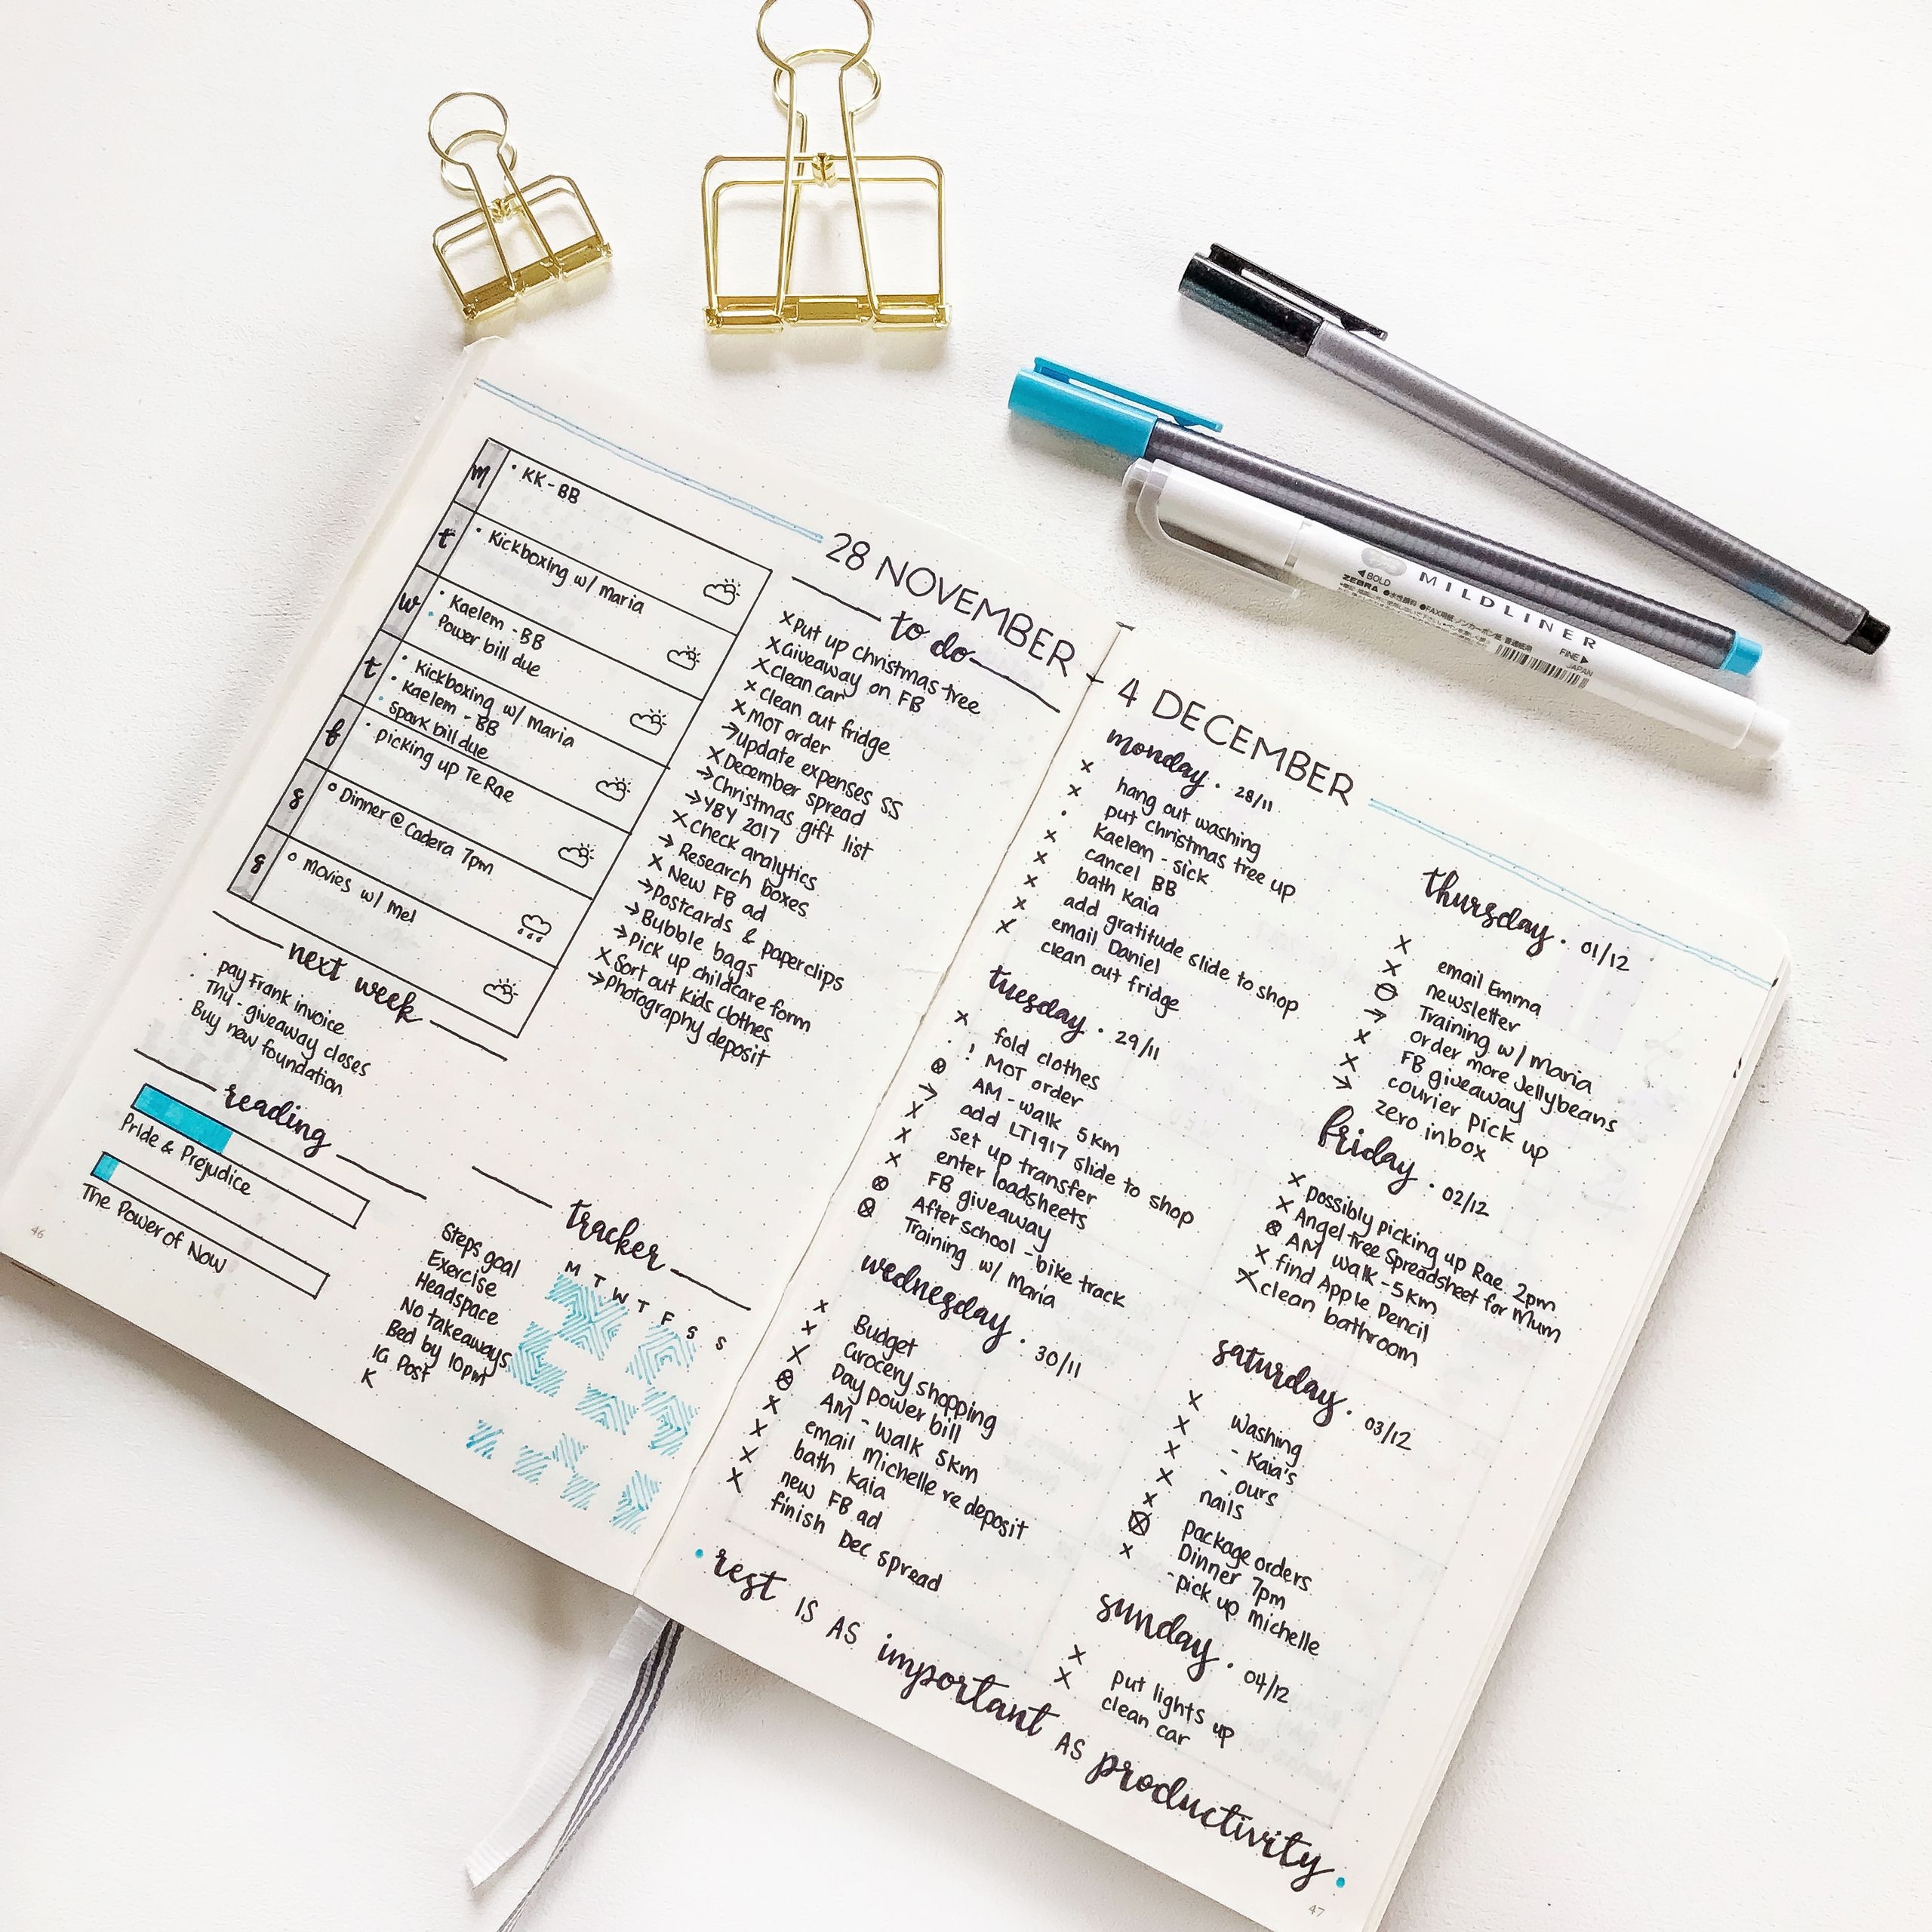 28 NOVEMBER - 4 DECEMBER
m
• KK - BB
t
• Kickboxing w/ maria
w
• Kaelem - BB
• Power bill due
t
• Kickboxing w/ maria
• Kaelem - BB
• Spark bill due
f
• picking up Te Rae
s
o Dinner @ Cadera 7pm
s
o movies w/ mel
next week
• pay Frank invoice
• Thu - giveaway closes
• Buy new foundation
reading
Pride & Prejudice
The Power of Now
46
to do
x Put up christmas tree
x Giveaway on FB
x Clean car
x clean out fridge
x MOT order
→ update expenses SS
x December spread
→ Christmas gift list
→ YBY 2017
x Check analytics
→ Research boxes
x New FB ad
→ Postcards & paperclips
→ Bubble bags
→ Pick up childcare form
x Sort out kids clothes
→ photography deposit
tracker
M T W T F S S
Steps goal
Exercise
Headspace
No takeaways
Bed by 10pm
IG Post
K
monday • 28/11
x hang out washing
x put Christmas tree up
• Kaelem - sick
x cancel BB
x bath Kaia
x add gratitude slide to shop
x email Daniel
x clean out fridge
tuesday • 29/11
x fold clothes
• ! MOT order
⊗ AM - walk 5km
→ add LT1917 slide to shop
x set up transfer
x enter loadsheets
x FB giveaway
⊗ After school - bike track
⊗ Training w/ Maria
wednesday • 30/11
x Budget
x Grocery shopping
x Pay power bill
⊗ AM - walk 5km
x email Michelle re deposit
x bath Kaia
x new FB ad
x finish Dec spread
thursday • 01/12
x email Emma
x newsletter
⊖ Training w/ Maria
→ order more Jellybeans
x FB giveaway
x courier pick up
→ zero inbox
friday • 02/12
x possibly picking up Rae 2pm
x Angel tree Spreadsheet for Mum
⊗ AM walk - 5km
x find Apple Pencil
x clean bathroom
saturday • 03/12
x washing
x - Kaia's
x - ours
x nails
x package orders
⊗ Dinner 7pm
x - pick up Michelle
sunday • 04/12
x put lights up
x clean car
• rest IS AS important AS productivity •
47
◀BOLD
ZEBRA
MILDLINER
FINE▶
JAPAN